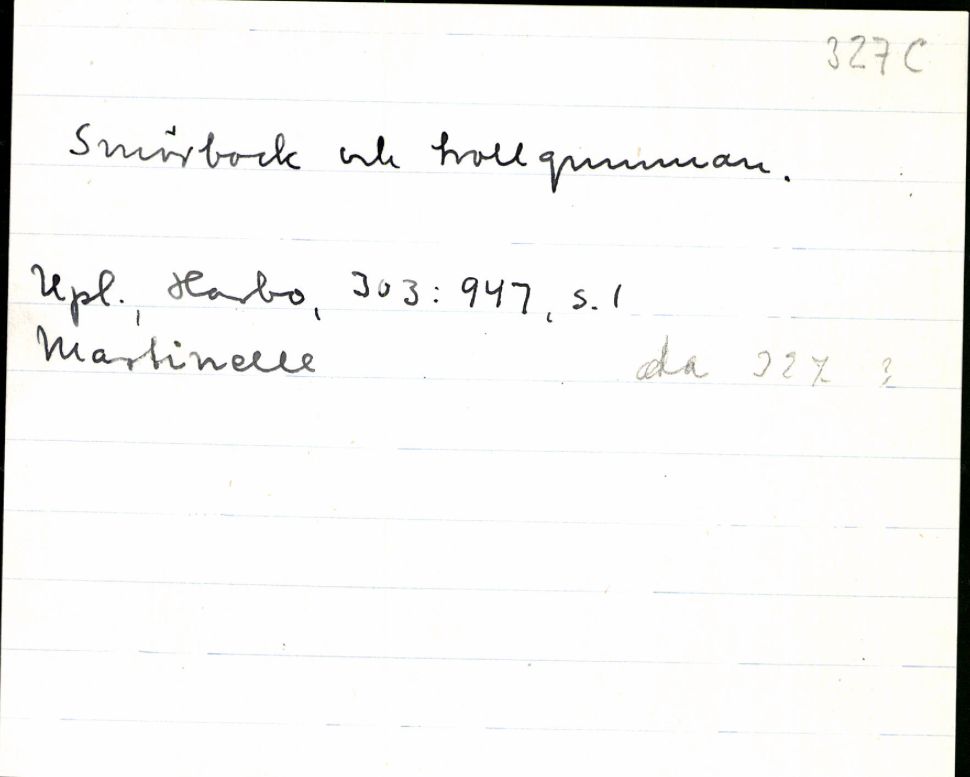 327 C
Smörbock och trollgumman.
Upl., Harbo, 303:947, s. 1
Martinelle
327